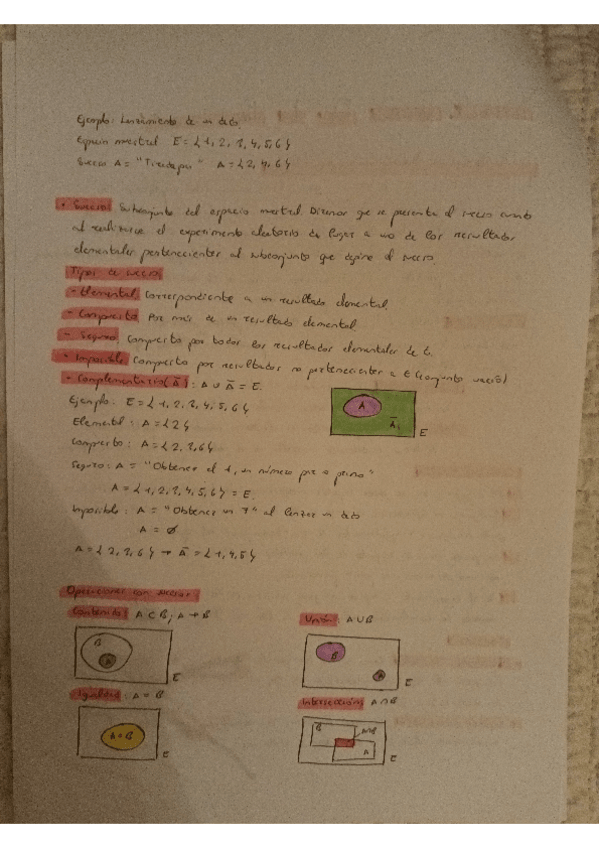 Ejemplo: Lanzamiento de un dado.
Espacio muestral E = {1, 2, 3, 4, 5, 6}
Suceso A = "Tirada par" A = {2, 4, 6}
• Suceso: Subconjunto del espacio muestral. Diremos que se presenta el suceso cuando
al realizarse el experimento aleatorio da lugar a uno de los resultados
elementales pertenecientes al subconjunto que define el suceso.
Tipos de suceso
- Elemental: Correspondiente a un resultado elemental.
- Compuesto: Por más de un resultado elemental.
- Seguro: Compuesto por todos los resultados elementales de E.
- Imposible: Compuesto por resultados no pertenecientes a E (conjunto vacío)
- Complementario (Ā): A ∪ Ā = E.
Ejemplo: E = {1, 2, 3, 4, 5, 6}
A
Ā
E
Elemental: A = {2}
Compuesto: A = {2, 3, 6}
Seguro: A = "Obtener el 1, un número par o primo"
A = {1, 2, 3, 4, 5, 6} = E.
Imposible: A = "Obtener un 7" al lanzar un dado
A = ∅
A = {2, 3, 6} → Ā = {1, 4, 5}
Operaciones con sucesos:
Contenido: A ⊂ B; A → B
Unión: A ∪ B
B
A
E
B
A
E
Igualdad: A = B
Intersección: A ∩ B
A = B
E
B
A∩B
A
E